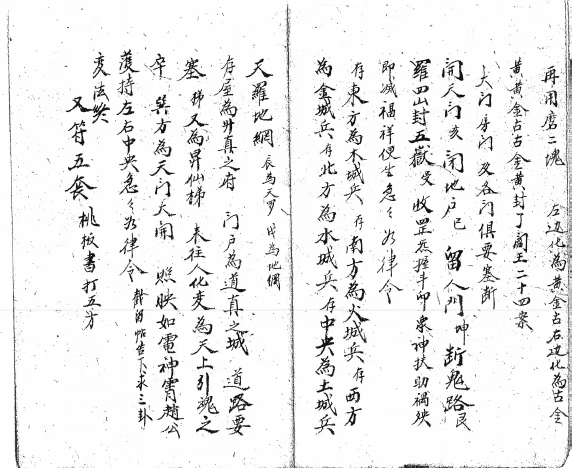 再用磨二塊 左边化為黄金古右边化為古金
黄黄金古古金黄封了阎王二十四案
大门房门及各门俱要塞断
開天门亥 闭地户巳 留人門坤 断鬼路艮
羅四山封五嶽 收罡 斗印衆神扶助禍殃
即滅福祥便生急々如律令
存東方為木城兵 存南方為火城兵 存西方
為金城兵 存北方為水城兵 存中央為土城兵
天羅地網 辰為天罗 戌為地網
存屋為升真之府 门户為道真之城 道路要
塞 梯又為昇仙梯 来往人化変為天上引魂之
幸 巽方為天门大開 照映如電神霄趙公
護持左右中央急々如律令
変法終
又符五套 桃板書打五方